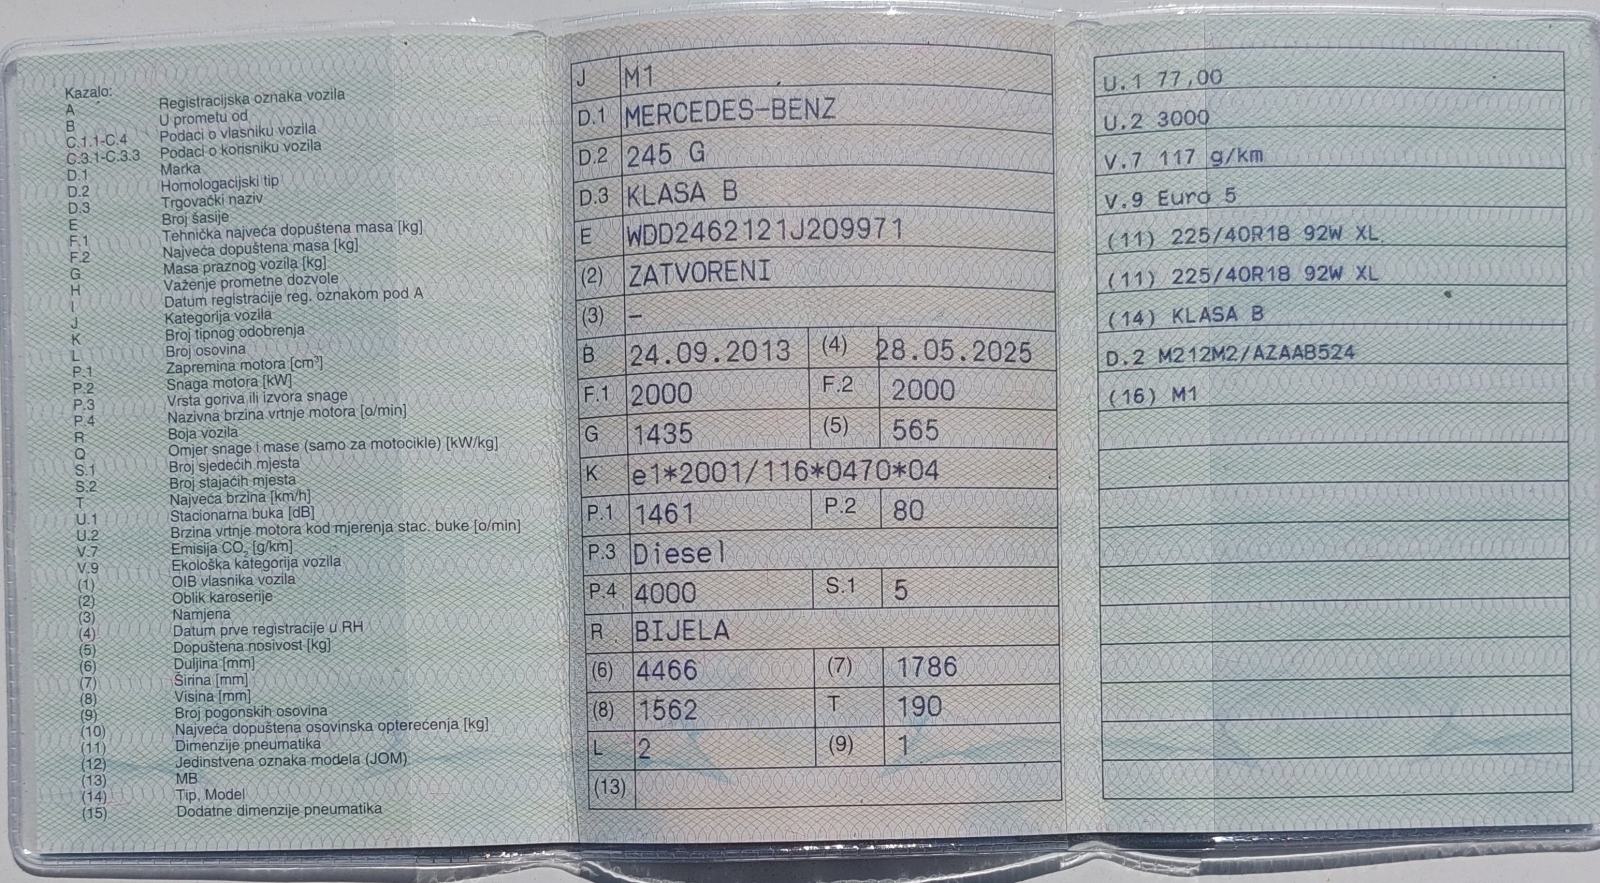 Kazalo:
A Registracijska oznaka vozila
B U prometu od
C.1.1-C.4 Podaci o vlasniku vozila
C.3.1-C.3.3 Podaci o korisniku vozila
D.1 Marka
D.2 Homologacijski tip
D.3 Trgovački naziv
E Broj šasije
F.1 Tehnička najveća dopuštena masa [kg]
F.2 Najveća dopuštena masa [kg]
G Masa praznog vozila [kg]
H Važenje prometne dozvole
I Datum registracije reg. oznakom pod A
J Kategorija vozila
K Broj tipnog odobrenja
L Broj osovina
P.1 Zapremina motora [cm³]
P.2 Snaga motora [kW]
P.3 Vrsta goriva ili izvora snage
P.4 Nazivna brzina vrtnje motora [o/min]
R Boja vozila
Q Omjer snage i mase (samo za motocikle) [kW/kg]
S.1 Broj sjedećih mjesta
S.2 Broj stajaćih mjesta
T Najveća brzina [km/h]
U.1 Stacionarna buka [dB]
U.2 Brzina vrtnje motora kod mjerenja stac. buke [o/min]
V.7 Emisija CO₂ [g/km]
V.9 Ekološka kategorija vozila
(1) OIB vlasnika vozila
(2) Oblik karoserije
(3) Namjena
(4) Datum prve registracije u RH
(5) Dopuštena nosivost [kg]
(6) Duljina [mm]
(7) Širina [mm]
(8) Visina [mm]
(9) Broj pogonskih osovina
(10) Najveća dopuštena osovinska opterećenja [kg]
(11) Dimenzije pneumatika
(12) Jedinstvena oznaka modela (JOM)
(13) MB
(14) Tip, Model
(15) Dodatne dimenzije pneumatika
J M1
D.1 MERCEDES-BENZ
D.2 245 G
D.3 KLASA B
E WDD2462121J209971
(2) ZATVORENI
(3) –
B 24.09.2013 (4) 28.05.2025
F.1 2000 F.2 2000
G 1435 (5) 565
K e1*2001/116*0470*04
P.1 1461 P.2 80
P.3 Diesel
P.4 4000 S.1 5
R BIJELA
(6) 4466 (7) 1786
(8) 1562 T 190
L 2 (9) 1
(13)
U.1 77,00
U.2 3000
V.7 117 g/km
V.9 Euro 5
(11) 225/40R18 92W XL
(11) 225/40R18 92W XL
(14) KLASA B
D.2 M212M2/AZAAB524
(16) M1